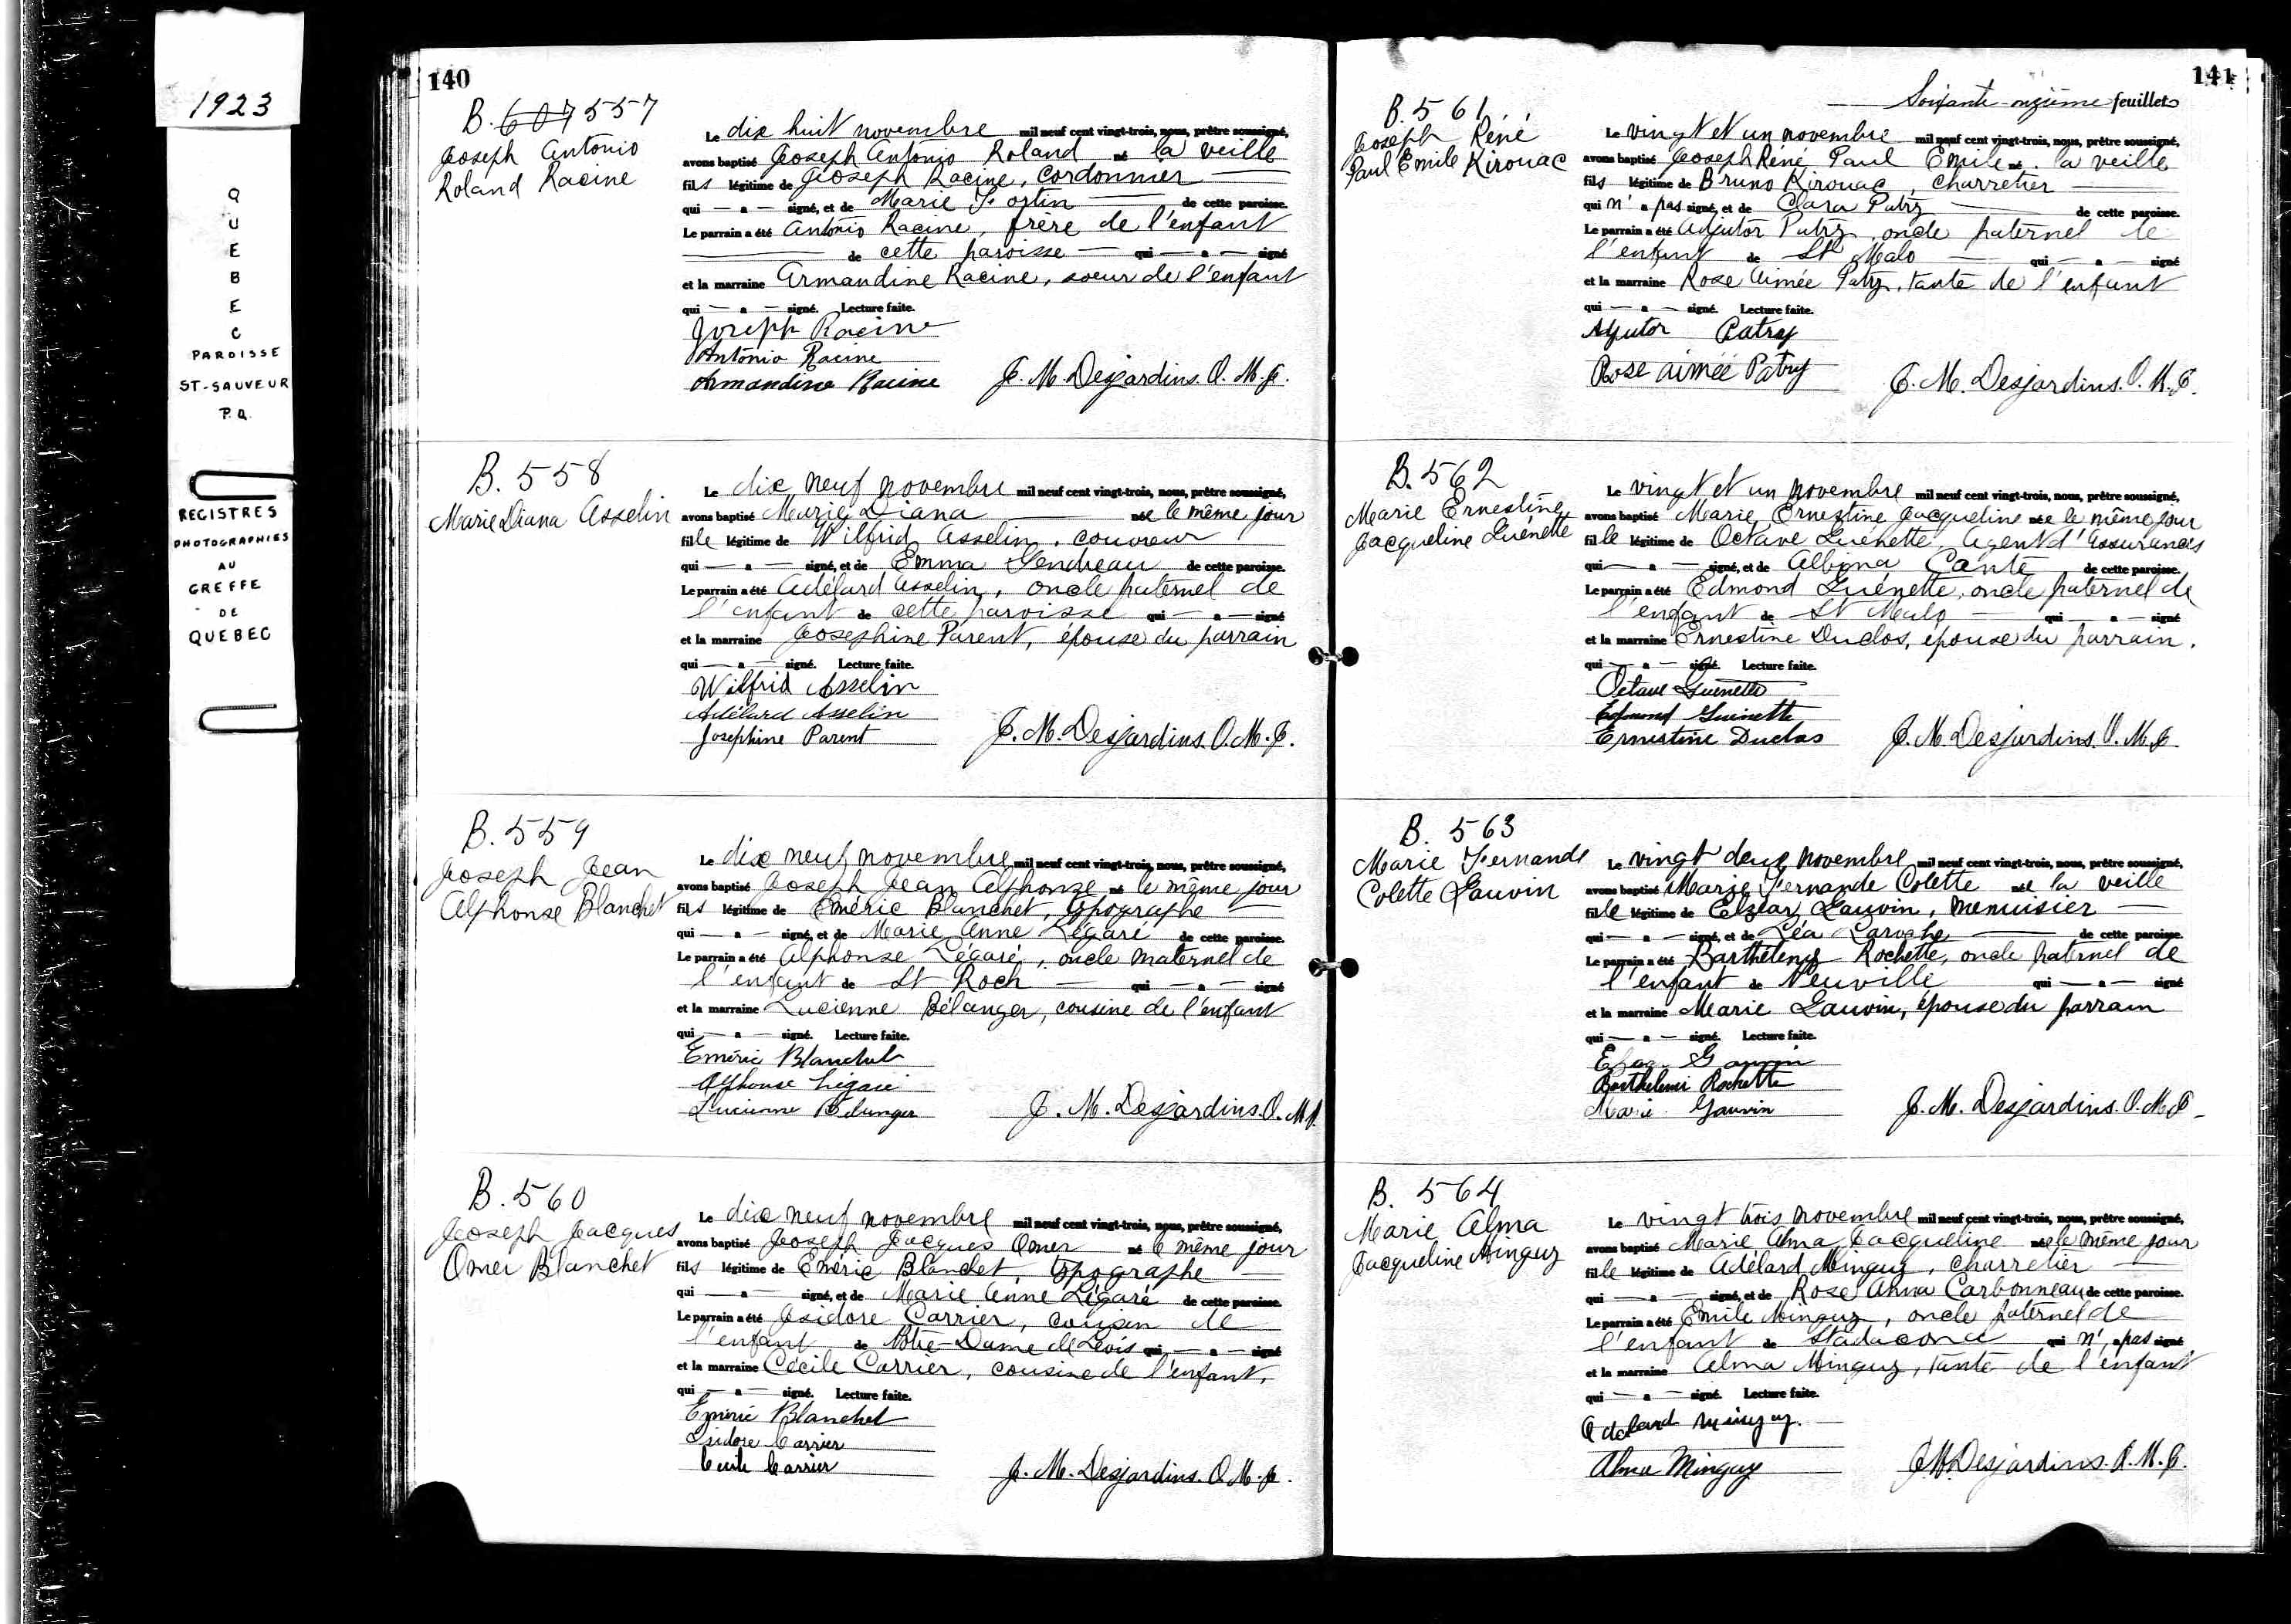 1923
QUEBEC
PAROISSE
ST-SAUVEUR
P.Q.
REGISTRES
PHOTOGRAPHIES
AU
GREFFE
DE
QUEBEC
140
B. 607 557
Joseph Antonio
Roland Racine
Le dix huit novembre mil neuf cent vingt-trois, nous, prêtre soussigné,
avons baptisé Joseph Antonio Roland né la veille
fils légitime de Joseph Racine, cordonnier
qui — a — signé, et de Marie Fortin de cette paroisse.
Le parrain a été Antonio Racine, frère de l'enfant
de cette paroisse — qui — a — signé
et la marraine Armandine Racine, soeur de l'enfant
qui — a — signé. Lecture faite.
Joseph Racine
Antonio Racine
Armandine Racine J. M. Desjardins. O. M. J.
B. 558
Marie Diana Asselin
Le dix neuf novembre mil neuf cent vingt-trois, nous, prêtre soussigné,
avons baptisé Marie Diana née le même jour
fille légitime de Wilfrid Asselin, couvreur
qui — a — signé, et de Emma Gendreau de cette paroisse.
Le parrain a été Adélard Asselin, oncle paternel de
l'enfant de cette paroisse qui — a — signé
et la marraine Josephine Parent, épouse du parrain
qui — a — signé. Lecture faite.
Wilfrid Asselin
Adélard Asselin
Josephine Parent J. M. Desjardins. O. M. J.
B. 559
Joseph Jean
Alphonse Blanchet
Le dix neuf novembre mil neuf cent vingt-trois, nous, prêtre soussigné,
avons baptisé Joseph Jean Alphonse né le même jour
fils légitime de Eméric Blanchet, typographe
qui — a — signé, et de Marie Anne Légaré de cette paroisse.
Le parrain a été Alphonse Légaré, oncle maternel de
l'enfant de St Roch — qui — a — signé
et la marraine Lucienne Bélanger, cousine de l'enfant
qui — a — signé. Lecture faite.
Eméric Blanchet
Alphonse Légaré
Lucienne Bélanger J. M. Desjardins. O. M. J.
B. 560
Joseph Jacques
Omer Blanchet
Le dix neuf novembre mil neuf cent vingt-trois, nous, prêtre soussigné,
avons baptisé Joseph Jacques Omer né le même jour
fils légitime de Eméric Blanchet, typographe
qui — a — signé, et de Marie Anne Légaré de cette paroisse.
Le parrain a été Isidore Carrier, cousin de
l'enfant de Notre-Dame de Levis qui — a — signé
et la marraine Cécile Carrier, cousine de l'enfant.
qui — a — signé. Lecture faite.
Eméric Blanchet
Isidore Carrier
Cecile Carrier J. M. Desjardins. O. M. J.
141
Soixante-onzième feuillet
B. 561
Joseph Réné
Paul Emile Kirouac
Le vingt et un novembre mil neuf cent vingt-trois, nous, prêtre soussigné,
avons baptisé Joseph Réné Paul Emile né la veille
fils légitime de Bruno Kirouac, charretier
qui n'a pas signé, et de Clara Patry de cette paroisse.
Le parrain a été Adjutor Patry, oncle paternel de
l'enfant de St Malo — qui — a — signé
et la marraine Rose Aimée Patry, tante de l'enfant
qui — a — signé. Lecture faite.
Adjutor Patry
Rose aimée Patry J. M. Desjardins. O. M. J.
B. 562
Marie Ernestine
Jacqueline Guénette
Le vingt et un novembre mil neuf cent vingt-trois, nous, prêtre soussigné,
avons baptisé Marie Ernestine Jacqueline née le même jour
fille légitime de Octave Guénette, Agent d'Assurances
qui — a — signé, et de Albina Cante de cette paroisse.
Le parrain a été Edmond Guénette, oncle paternel de
l'enfant de St Malo — qui — a — signé
et la marraine Ernestine Duclos, épouse du parrain.
qui — a — signé. Lecture faite.
Octave Guenette
Edmond Guenette
Ernestine Duclos J. M. Desjardins. O. M. J.
B. 563
Marie Fernande
Colette Gauvin
Le vingt deux novembre mil neuf cent vingt-trois, nous, prêtre soussigné,
avons baptisé Marie Fernande Colette née la veille
fille légitime de Elzéar Gauvin, menuisier —
qui — a — signé, et de Léa Laroche de cette paroisse.
Le parrain a été Barthélemy Rochette, oncle paternel de
l'enfant de Neuville qui — a — signé
et la marraine Marie Gauvin, épouse du parrain
qui — a — signé. Lecture faite.
Elzear Gauvin
Barthelemi Rochette
Marie Gauvin J. M. Desjardins. O. M. J.
B. 564
Marie Alma
Jacqueline Minguy
Le vingt trois novembre mil neuf cent vingt-trois, nous, prêtre soussigné,
avons baptisé Marie Alma Jacqueline née le même jour
fille légitime de Adélard Minguy, charretier
qui — a — signé, et de Rose Anna Carbonneau de cette paroisse.
Le parrain a été Emile Minguy, oncle paternel de
l'enfant de Stadacona qui n'a pas signé
et la marraine Alma Minguy, tante de l'enfant
qui — a — signé. Lecture faite.
Adelard Minguy.
Alma Minguy J. M. Desjardins. O. M. J.